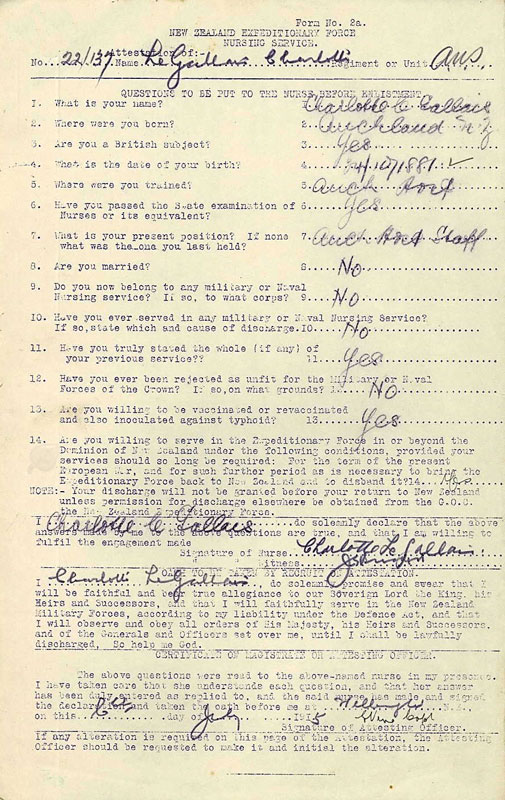 Form No. 2a.
NEW ZEALAND EXPEDITIONARY FORCE
NURSING SERVICE.
Attestation of:-
No. 22/137 Name. Le Gallais Charlotte Regiment or Unit A.N.S.
QUESTIONS TO BE PUT TO THE NURSE BEFORE ENLISTMENT
1. What is your name? Charlotte Le Gallais
2. Where were you born? 2. Auckland N.Z
3. Are you a British subject? 3. Yes
4. What is the date of your birth? 4. 1881
5. Where were you trained? 5. Auck
6. Have you passed the State examination of 6. Yes
Nurses or its equivalent?
7. What is your present position? If none 7. Auck Staff
what was the one you last held?
8. Are you married? 8. No
9. Do you now belong to any military or Naval
Nursing service? If so, to what corps? 9. No
10. Have you ever served in any military or Naval Nursing Service?
If so,state which and cause of discharge.10. No
11. Have you truly stated the whole (if any) of
your previous service?? 11. Yes
12. Have you ever been rejected as unfit for the Military or Naval
Forces of the Crown? If so,on what grounds? No
13. Are you willing to be vaccinated or revaccinated
and also inoculated against typhoid? 13. Yes
14. Are you willing to serve in the Expeditionary Force in or beyond the
Dominion of New Zealand under the following conditions, provided your
services should so long be required: For the term of the present
European War, and for such further period as is necessary to bring the
Expeditionary Force back to New Zealand and to disband it?14. Yes
NOTE:- Your discharge will not be granted before your return to New Zealand
unless permission for discharge elsewhere be obtained from the G.O.C.
the New Zealand Expeditionary Force.
I Charlotte Le Gallais do solemnly declare that the above
answers made by me to the above questions are true, and that I am willing to
fulfil the engagement made
Signature of Nurse. Charlotte Le Gallais
Witness.
OATH TO BE TAKEN BY RECRUIT ON ATTESTATION.
I Charlotte Le Gallais, do solemnly promise and swear that I
will be faithful and bear true allegiance to our Soverign Lord the King, his
Heirs and Successors, and that I will faithfully serve in the New Zealand
Military Forces, according to my liability under the Defence Act, and that
I will observe and obey all orders of His Majesty, his Heirs and Successors,
and of the Generals and Officers set over me, until I shall be lawfully
discharged, So help me God.
CERTIFICATE OF MAGISTRATE OR ATTESTING OFFICER.
The above questions were read to the above-named nurse in my presence
I have taken care that she understands each question, and that her answer
has been duly entered as replied to, and the said nurse has made and signed
the declaration and taken the oath before me at Wellington N.Z.
on this day of July 1915
Signature of Attesting Officer.
If any alteration is required on this page of the Attestation, the Attesting
Officer should be requested to make it and initial the alteration.